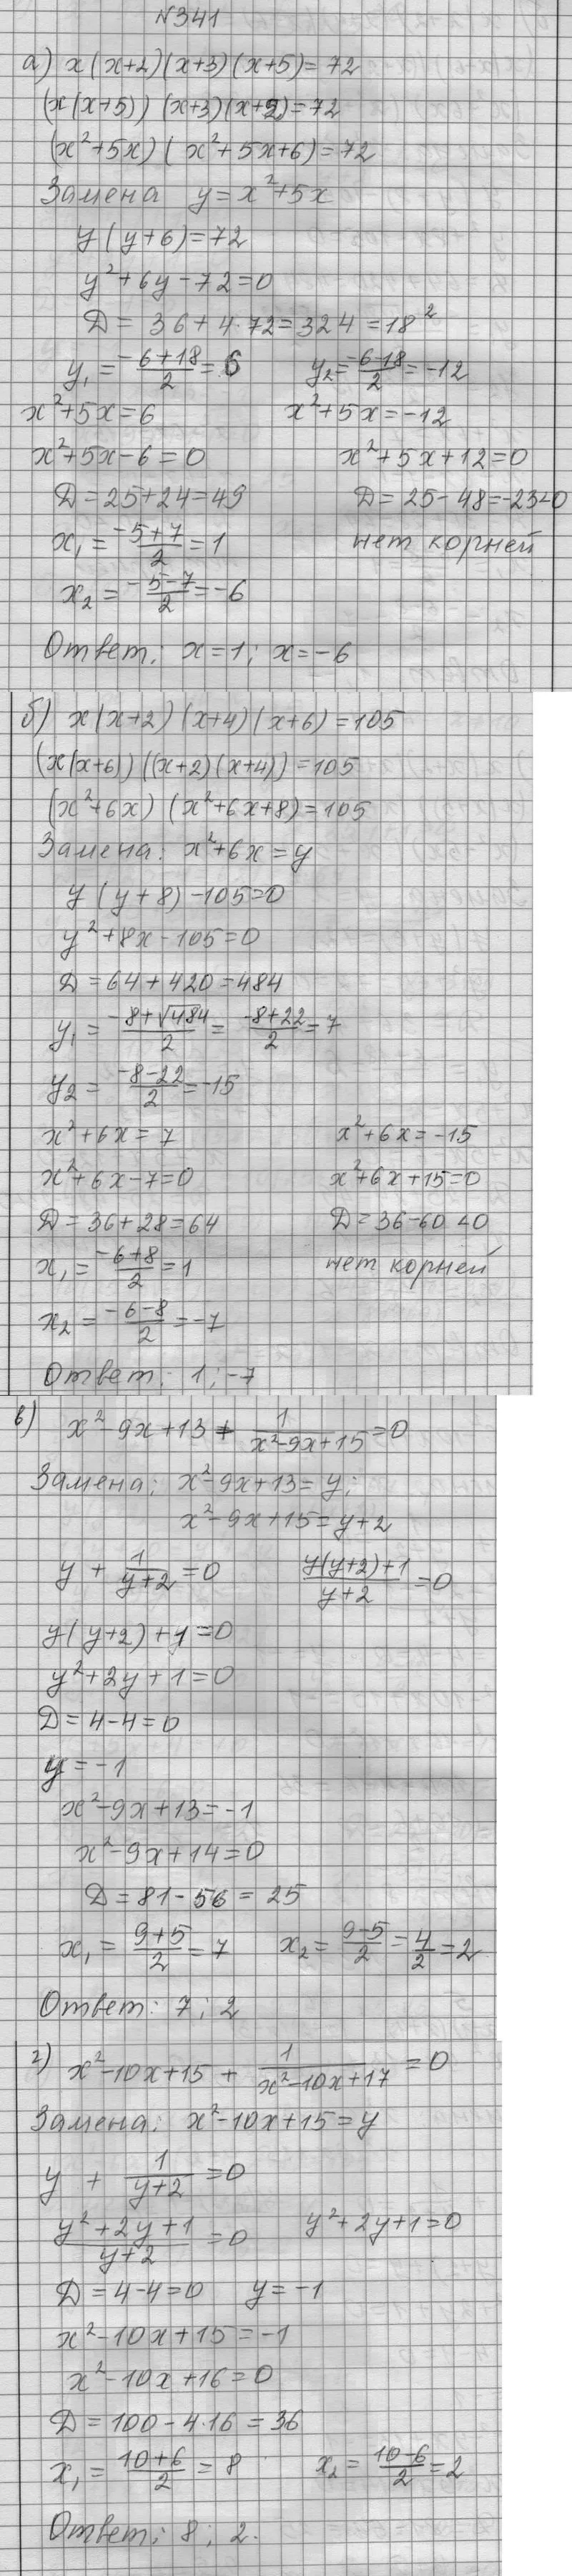 №341
а) x(x+2)(x+3)(x+5)=72
(x(x+5))(x+3)(x+2)=72
(x²+5x)(x²+5x+6)=72
Замена y=x²+5x
y(y+6)=72
y²+6y-72=0
D = 36+4·72=324=18²
y₁=(-6+18)/2=6 y₂=(-6-18)/2=-12
x²+5x=6 x²+5x=-12
x²+5x-6=0 x²+5x+12=0
D=25+24=49 D=25-48=-23<0
x₁=(-5+7)/2=1 нет корней
x₂=(-5-7)/2=-6
Ответ: x=1; x=-6
б) x(x+2)(x+4)(x+6)=105
(x(x+6))((x+2)(x+4))=105
(x²+6x)(x²+6x+8)=105
Замена: x²+6x=y
y(y+8)-105=0
y²+8x-105=0
D=64+420=484
y₁=(-8+√484)/2=(-8+22)/2=7
y₂=(-8-22)/2=-15
x²+6x=7 x²+6x=-15
x²+6x-7=0 x²+6x+15=0
D=36+28=64 D=36-60<0
x₁=(-6+8)/2=1 нет корней
x₂=(-6-8)/2=-7
Ответ: 1; -7
в) x²-9x+13+1/(x²-9x+15)=0
Замена: x²-9x+13=y;
x²-9x+15=y+2
y+1/(y+2)=0 (y(y+2)+1)/(y+2)=0
y(y+2)+1=0
y²+2y+1=0
D=4-4=0
y=-1
x²-9x+13=-1
x²-9x+14=0
D=81-56=25
x₁=(9+5)/2=7 x₂=(9-5)/2=4/2=2
Ответ: 7; 2
г) x²-10x+15+1/(x²-10x+17)=0
Замена: x²-10x+15=y
y+1/(y+2)=0
(y²+2y+1)/(y+2)=0 y²+2y+1=0
D=4-4=0 y=-1
x²-10x+15=-1
x²-10x+16=0
D=100-4·16=36
x₁=(10+6)/2=8 x₂=(10-6)/2=2
Ответ: 8; 2.